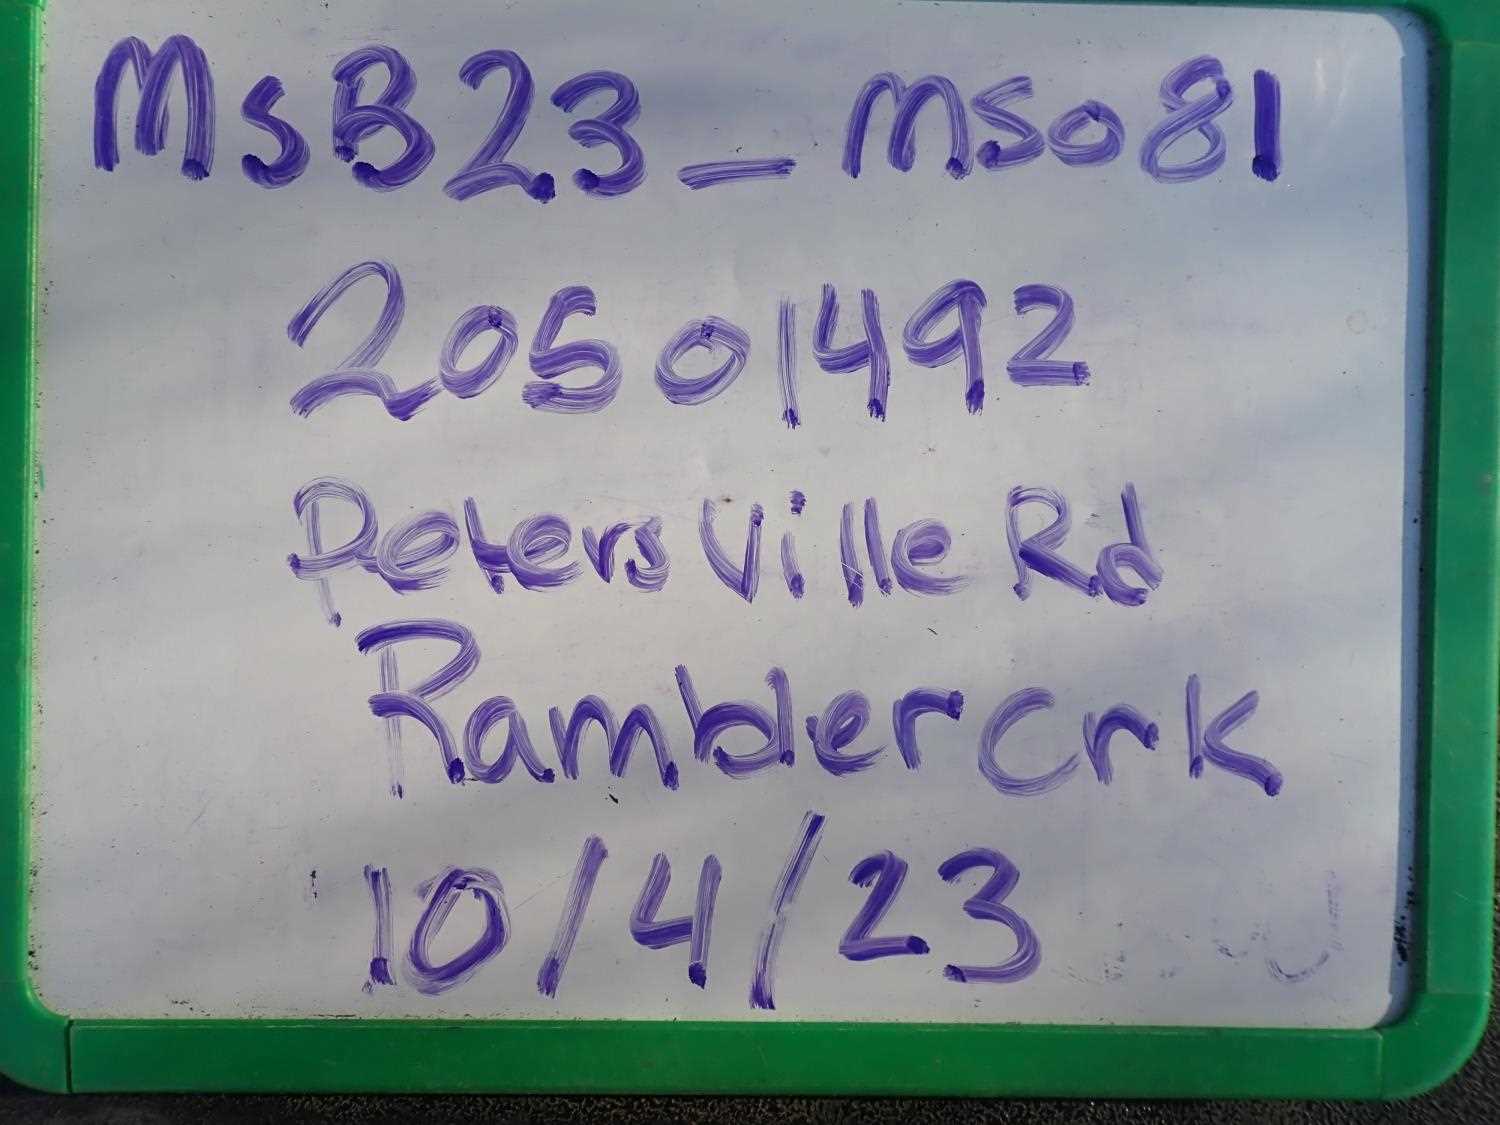 MSB23_MS081
20501492
Petersville Rd
Rambler crk
10/4/23